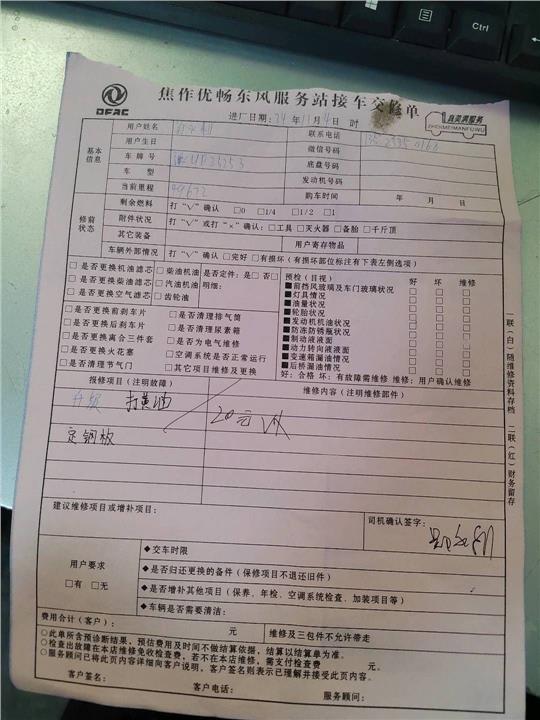 Ctrl
DFAC
焦作优畅东风服务站接车交修单
真美满服务
ZHENMEIMANFUWU
进厂日期: 24 年 11 月 4 日 时
基本信息
用户姓名
联系电话
用户生日
微信号码
车牌号
底盘号码
车型
发动机号码
当前里程
购车时间 年 月 日
修前状态
剩余燃料 打“√”确认 □0 □1/4 □1/2 □1
附件状况 打“√”或打“×”确认: □工具 □灭火器 □备胎 □千斤顶
其它装备 用户寄存物品
车辆外部情况 打“√”确认 □完好 □有损坏(有损坏部位标注有下表左侧选项)
□是否更换机油滤芯 □柴油机油 是否定件: 是□ 否□
□是否更换柴油滤芯 □汽油机油 明细:
□是否更换空气滤芯 □齿轮油
□是否更换前刹车片 □是否清理排气筒
□是否更换后刹车片 □是否清理尿素箱
□是否更换离合三件套 □是否为电气维修
□是否更换火花塞 □空调系统是否正常运行
□是否清理节气门 □其它项目维修及更换
预检(目视) 好 坏 维修
■前挡风玻璃及车门玻璃状况
■灯具情况
■油量状况
■轮胎状况
■发动机机油状况
■防冻防锈瓶状况
■制动液液面
■动力转向液液面
■变速箱漏油情况
■后桥漏油情况
好: 合格 坏: 有故障需维修 维修: 用户确认维修
报修项目(注明故障) 维修内容(注明维修部件)
打黄油
20元
定钢板
建议维修项目或增补项目:
司机确认签字:
用户要求
□有 □无
◆交车时限
◆是否归还更换的备件(保修项目不退还旧件)
◆是否增补其他项目(保养、年检、空调系统检查、加装项目等)
◆车辆是否需要清洁:
费用合计(客户): 元 维修及三包件不允许带走
○此单所含预诊断结果, 预估费用及时间不做结算依据, 结算以结算单为准。
○检查出故障在本店维修免收检查费, 若不在本店维修, 需支付检查费 元。
○服务顾问已将此页内容详细向客户说明, 客户签名则表示已理解并接受此页内容。
客户签名: 客户电话: 服务顾问:
一联(白)随维修资料存档 二联(红)财务留存